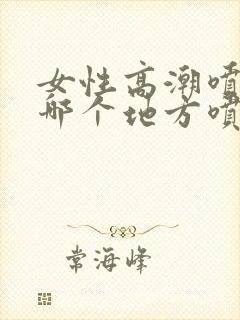 女性高潮喷
哪个地方喷
常海峰